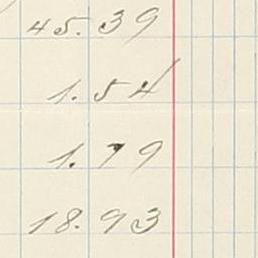 45.39
1.54
1.79
18.93